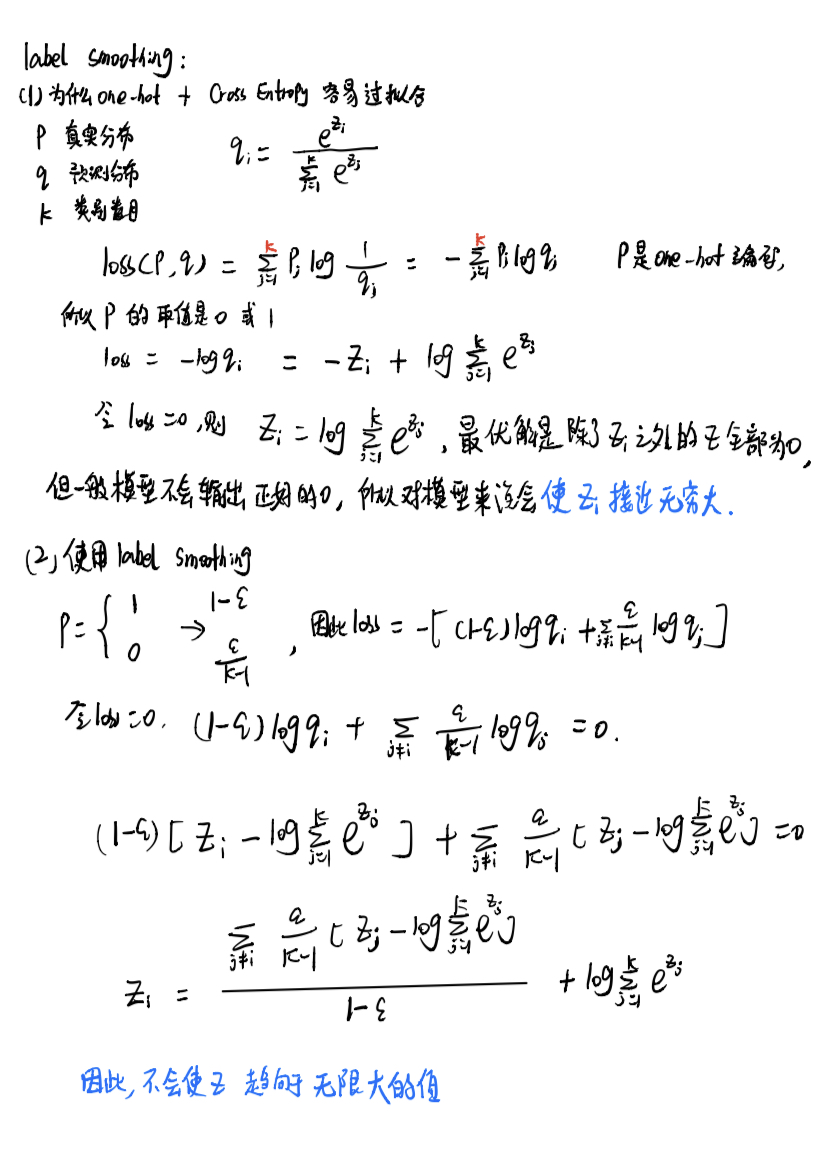 label smoothing:
(1) 为什么 one-hot + Cross Entropy 容易过拟合
P 真实分布
q 预测分布
k 类别数目
q_i = e^{z_i} / Σ_{j=1}^{k} e^{z_j}
loss(P,q) = Σ_{i=1}^{k} P_i log 1/q_i = - Σ_{i=1}^{k} P_i log q_i P是one-hot编码,
所以 P 的取值是 0 或 1
loss = -log q_i = - z_i + log Σ_{j=1}^{k} e^{z_j}
令 loss = 0, 则 z_i = log Σ_{j=1}^{k} e^{z_j}, 最优解是除了 z_i 之外的 z 全部为0,
但一般模型不会输出正好的0, 所以对模型来说会使 z_i 接近无穷大.
(2) 使用 label smoothing
P = { 1 0 → 1-ε ε/(k-1), 因此 loss = -[ (1-ε) log q_i + Σ_{j≠i} ε/(k-1) log q_j ]
令 loss = 0. (1-ε) log q_i + Σ_{j≠i} ε/(k-1) log q_j = 0.
(1-ε) [ z_i - log Σ_{j=1}^{k} e^{z_j} ] + Σ_{j≠i} ε/(k-1) [ z_j - log Σ_{j=1}^{k} e^{z_j} ] = 0
z_i = Σ_{j≠i} ε/(k-1) [ z_j - log Σ_{j=1}^{k} e^{z_j} ] / (ε-1) + log Σ_{j=1}^{k} e^{z_j}
因此, 不会使 z 趋向于无限大的值